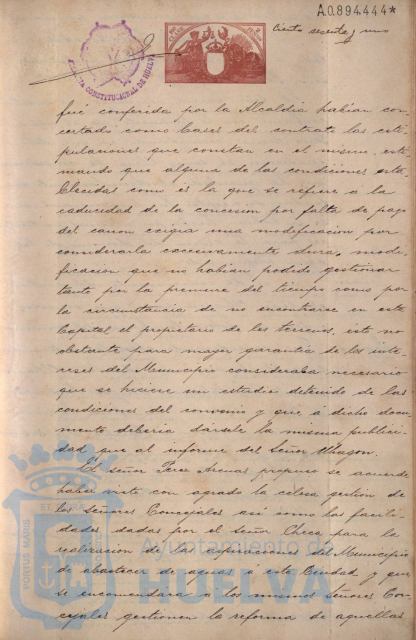 A.0.894.444*
Ciento sesenta y uno
ALCALDIA CONSTITUCIONAL DE HUELVA
fué conferida por la Alcaldia habian con-
certado como bases del contrato las esti-
pulaciones que constan en el mismo, esti-
mando que alguna de las condiciones esta-
blecidas como es la que se refiere a la
caducidad de la concesion por falta de pago
del canon exigia una modificacion por
considerarla excesivamente dura, modi-
ficacion que no habian podido gestionar
tanto por la premura del tiempo como por
la circunstancia de no encontrarse en esta
Capital el propietario de los terrenos, esto no
obstante para mayor garantia de los inte-
reses del Municipio consideraba necesario
que se hiciere un estudio detenido de las
condiciones del convenio y que á dicho docu-
mento deberia dársele la misma publici-
dad que al informe del Señor
El señor Perez Arenas propuso se acuerde
haber visto con agrado la celosa gestion de
los Señores Concejales asi como las facili-
dades dadas por el Señor Checa para la
realizacion de las aspiraciones del Municipio
de abastecer de aguas á esta Ciudad y que
se encomendara á los mismos señores Con-
cejales gestionen la reforma de aquellas
PORTUS MARIS ET TERRÆ
Ayuntamiento de
HUELVA